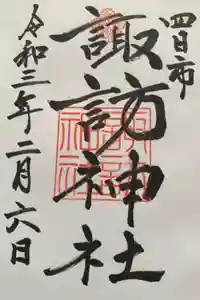 四日市
諏訪神社
令和三年二月六日